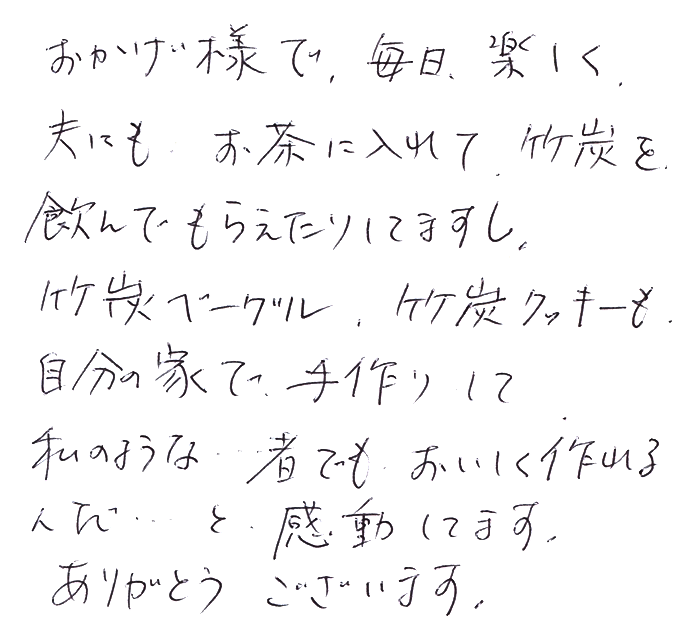 おかげ様で、毎日、楽しく、
夫にも お茶に入れて、竹炭を
飲んでもらえたりしてますし、
竹炭ベーグル、竹炭クッキーも
自分の家で、手作りして
私のような 者でも おいしく作れる
んだ… と 感動してます。
ありがとう ございます。